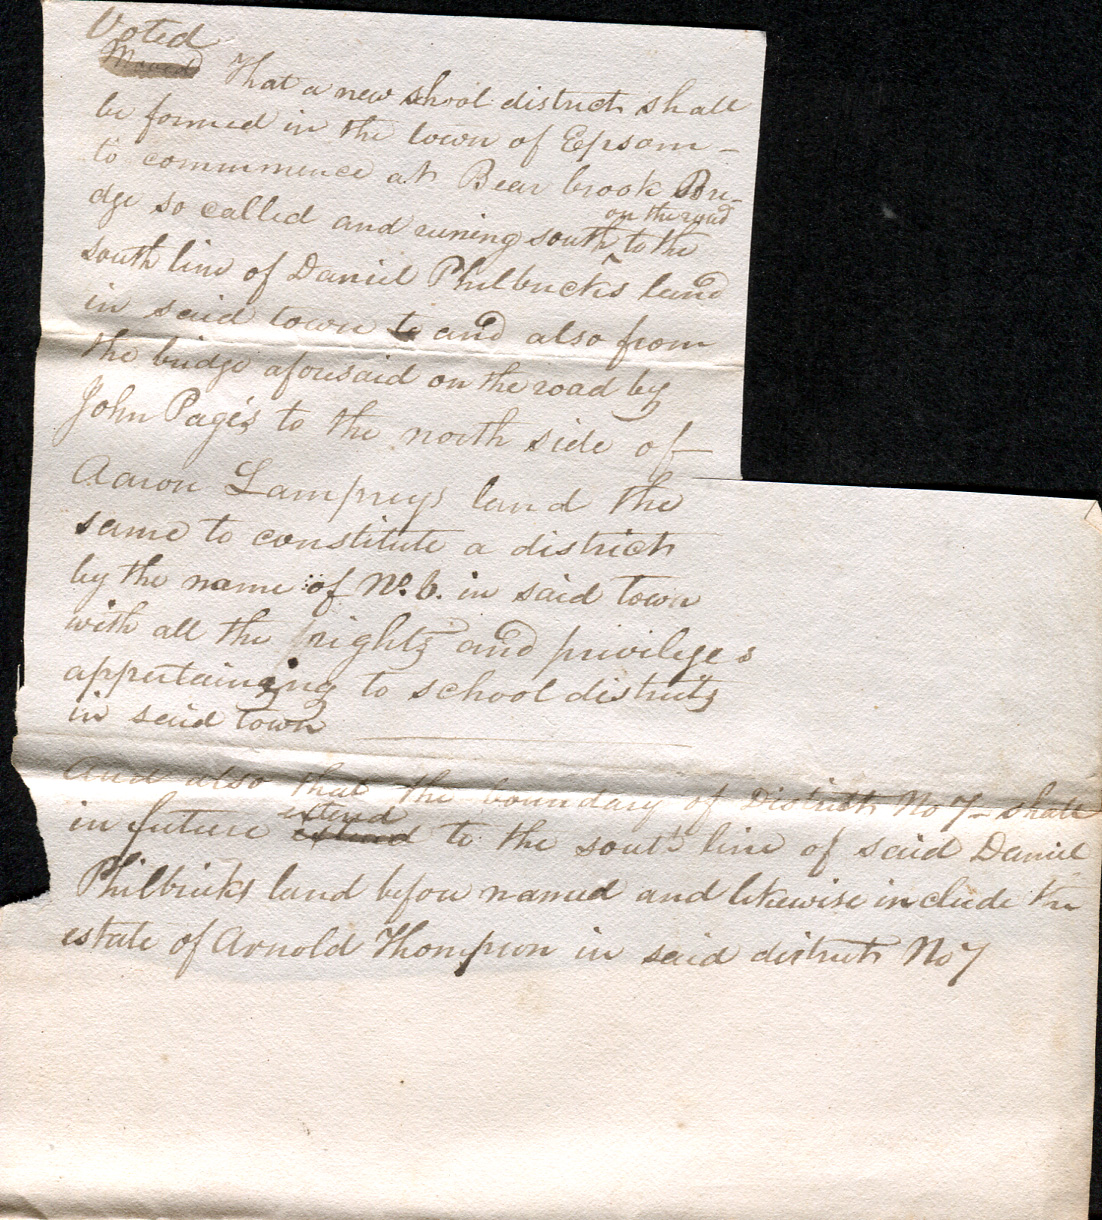 Voted
Moved That a new shool district shall
be formed in the town of Epsom -
to commence at Bear brook Bri-
dge so called and runing south on the road to the
south line of Daniel Philbrick's land
in said town to and also from
the bridge aforesaid on the road by
John Page's to the north side of
Aaron Lampreys land the
same to constitute a district
by the name of No. 6. in said town
with all the rights and privileges
appertaining to school districts
in said town
And also that the boundary of District No 7 - shall
in future extend extend to the south line of said Daniel
Philbricks land before named and likewise include the
estate of Arnold Thompson in said district No 7